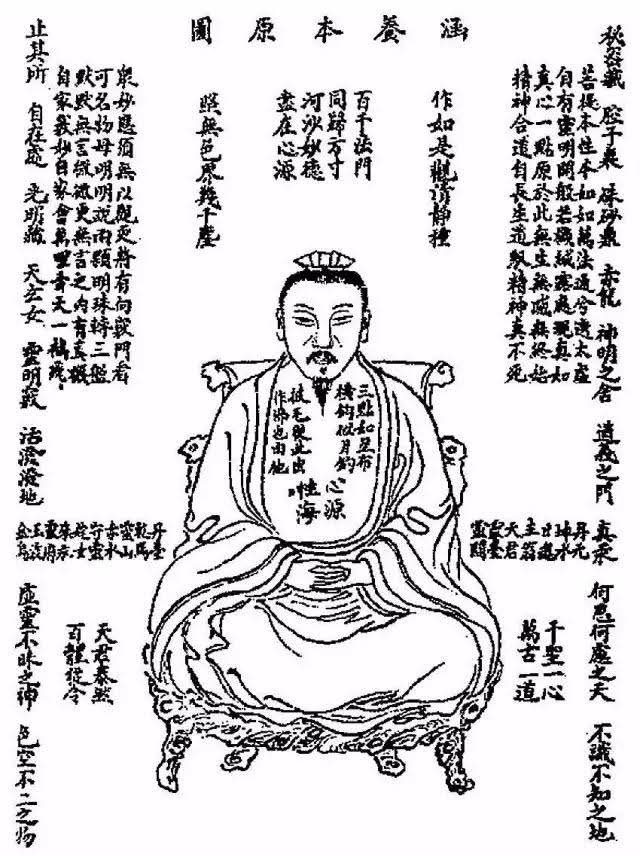 涵養本原圖
秘密藏 腔子裏 硃砂鼎 赤龍 神明之舍 道義之門 真汞 何思何慮之天 不識不知之地
菩提本性本如如萬法通兮遶太虛
自有靈明開般若機緘露處現真如
真心一點原於此無生無滅無終始
精神合道自長生道馭精神真不死
作如是觀清淨種
百千法門
同歸方寸
河沙妙德
盡在心源
照無色界幾千塵
眾妙懸須無以觀更將有向竅門看
可名物母明明說兩顆明珠轉三盤
默默無言微微更無言之內有真機
自家我妙自家會萬里青天一鶴飛
止其所 自在處 光明藏 天玄女 靈明竅 活潑潑地 虛靈不昧之神 色空不二之物
三點如星布
橫鈎似月鈎
披毛從此出
作佛也由他
心源
性海
坤水
主翁
天君
靈臺
靈關
丹臺
乾馬
靈山
赤水
守靈
奼女
靈府
玉液
金烏
千聖一心
萬古一道
天君泰然
百體從令